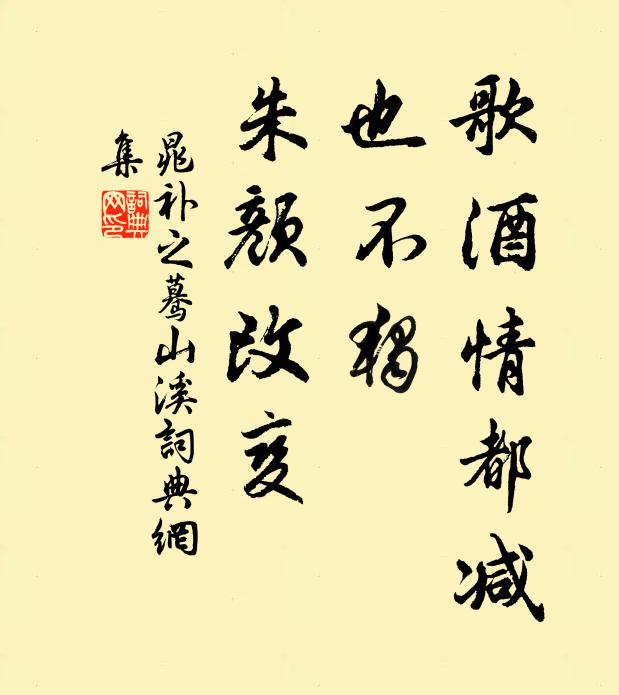 歌酒情都减
也不独
朱颜改变
晁补之蓦山溪詞典網
集
詞典
网印